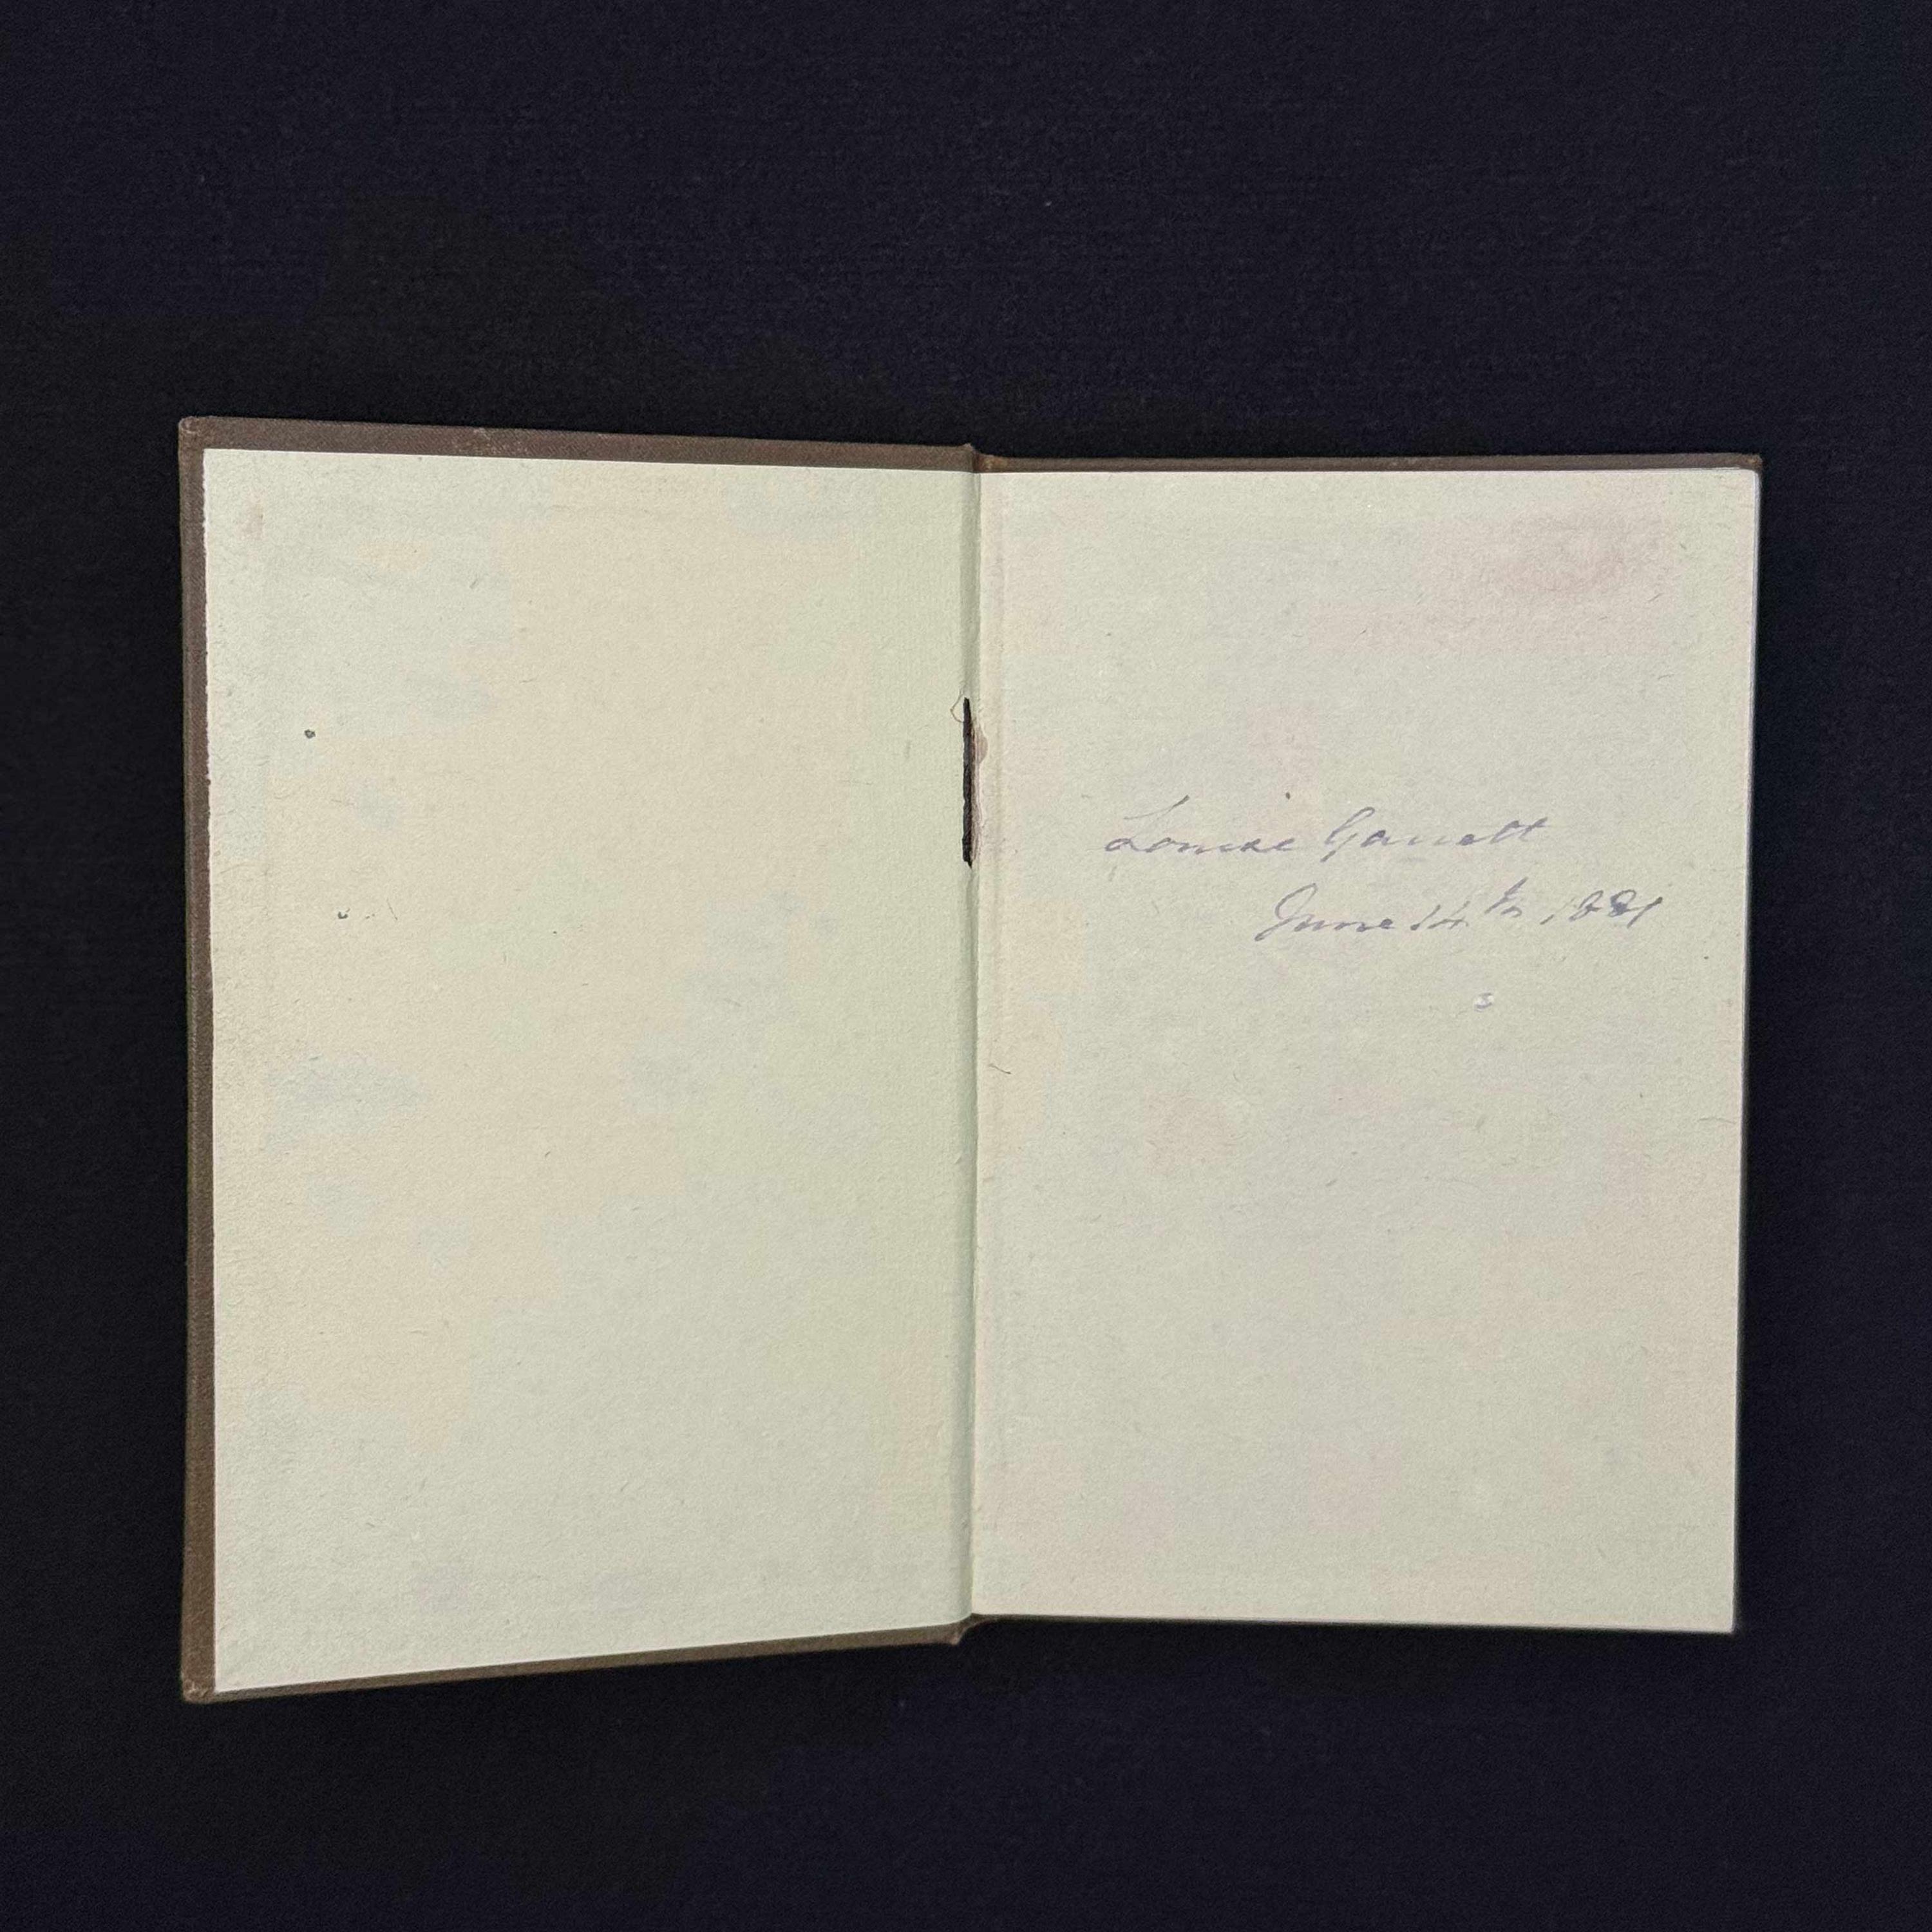 Louise Garrett
June 14th 1881